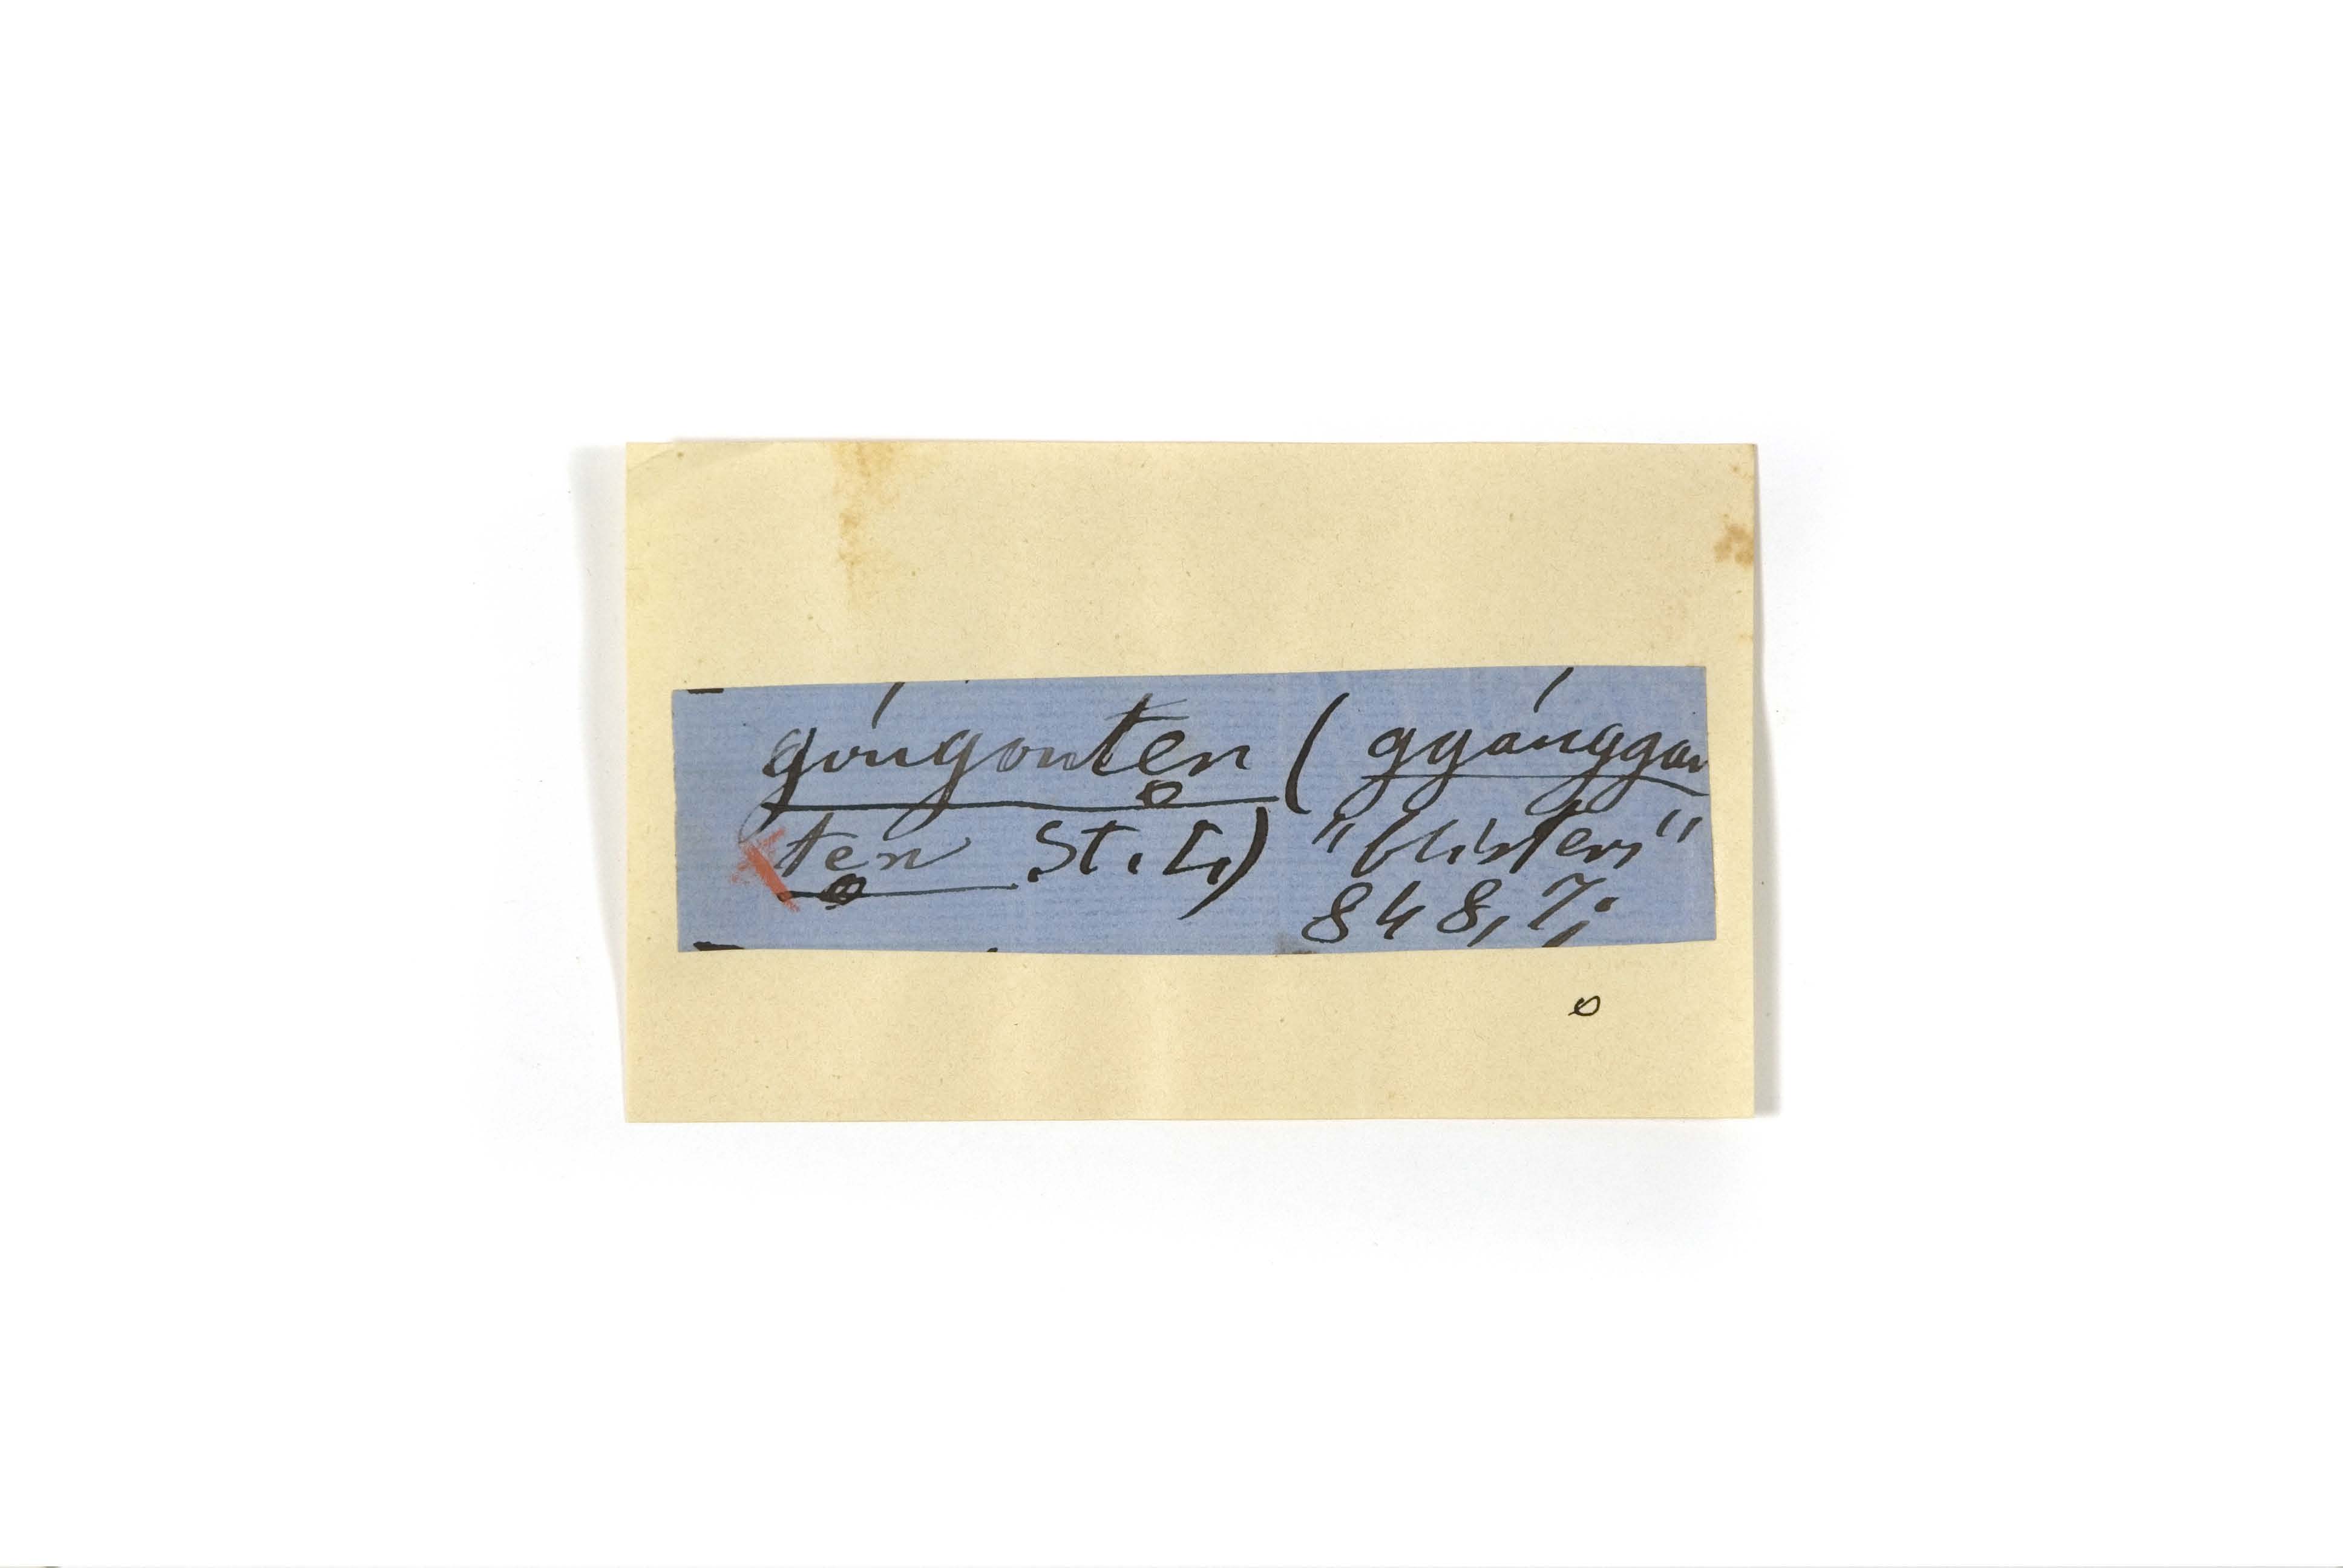 góugouten̥ ( gyánggau
ten̥ St. L.) "blisters"
848,7;